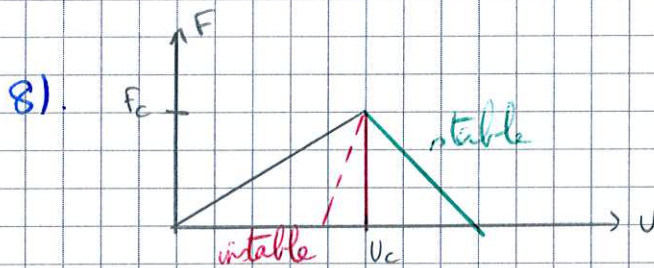 F
8).
Fc
stable
instable
Uc
U